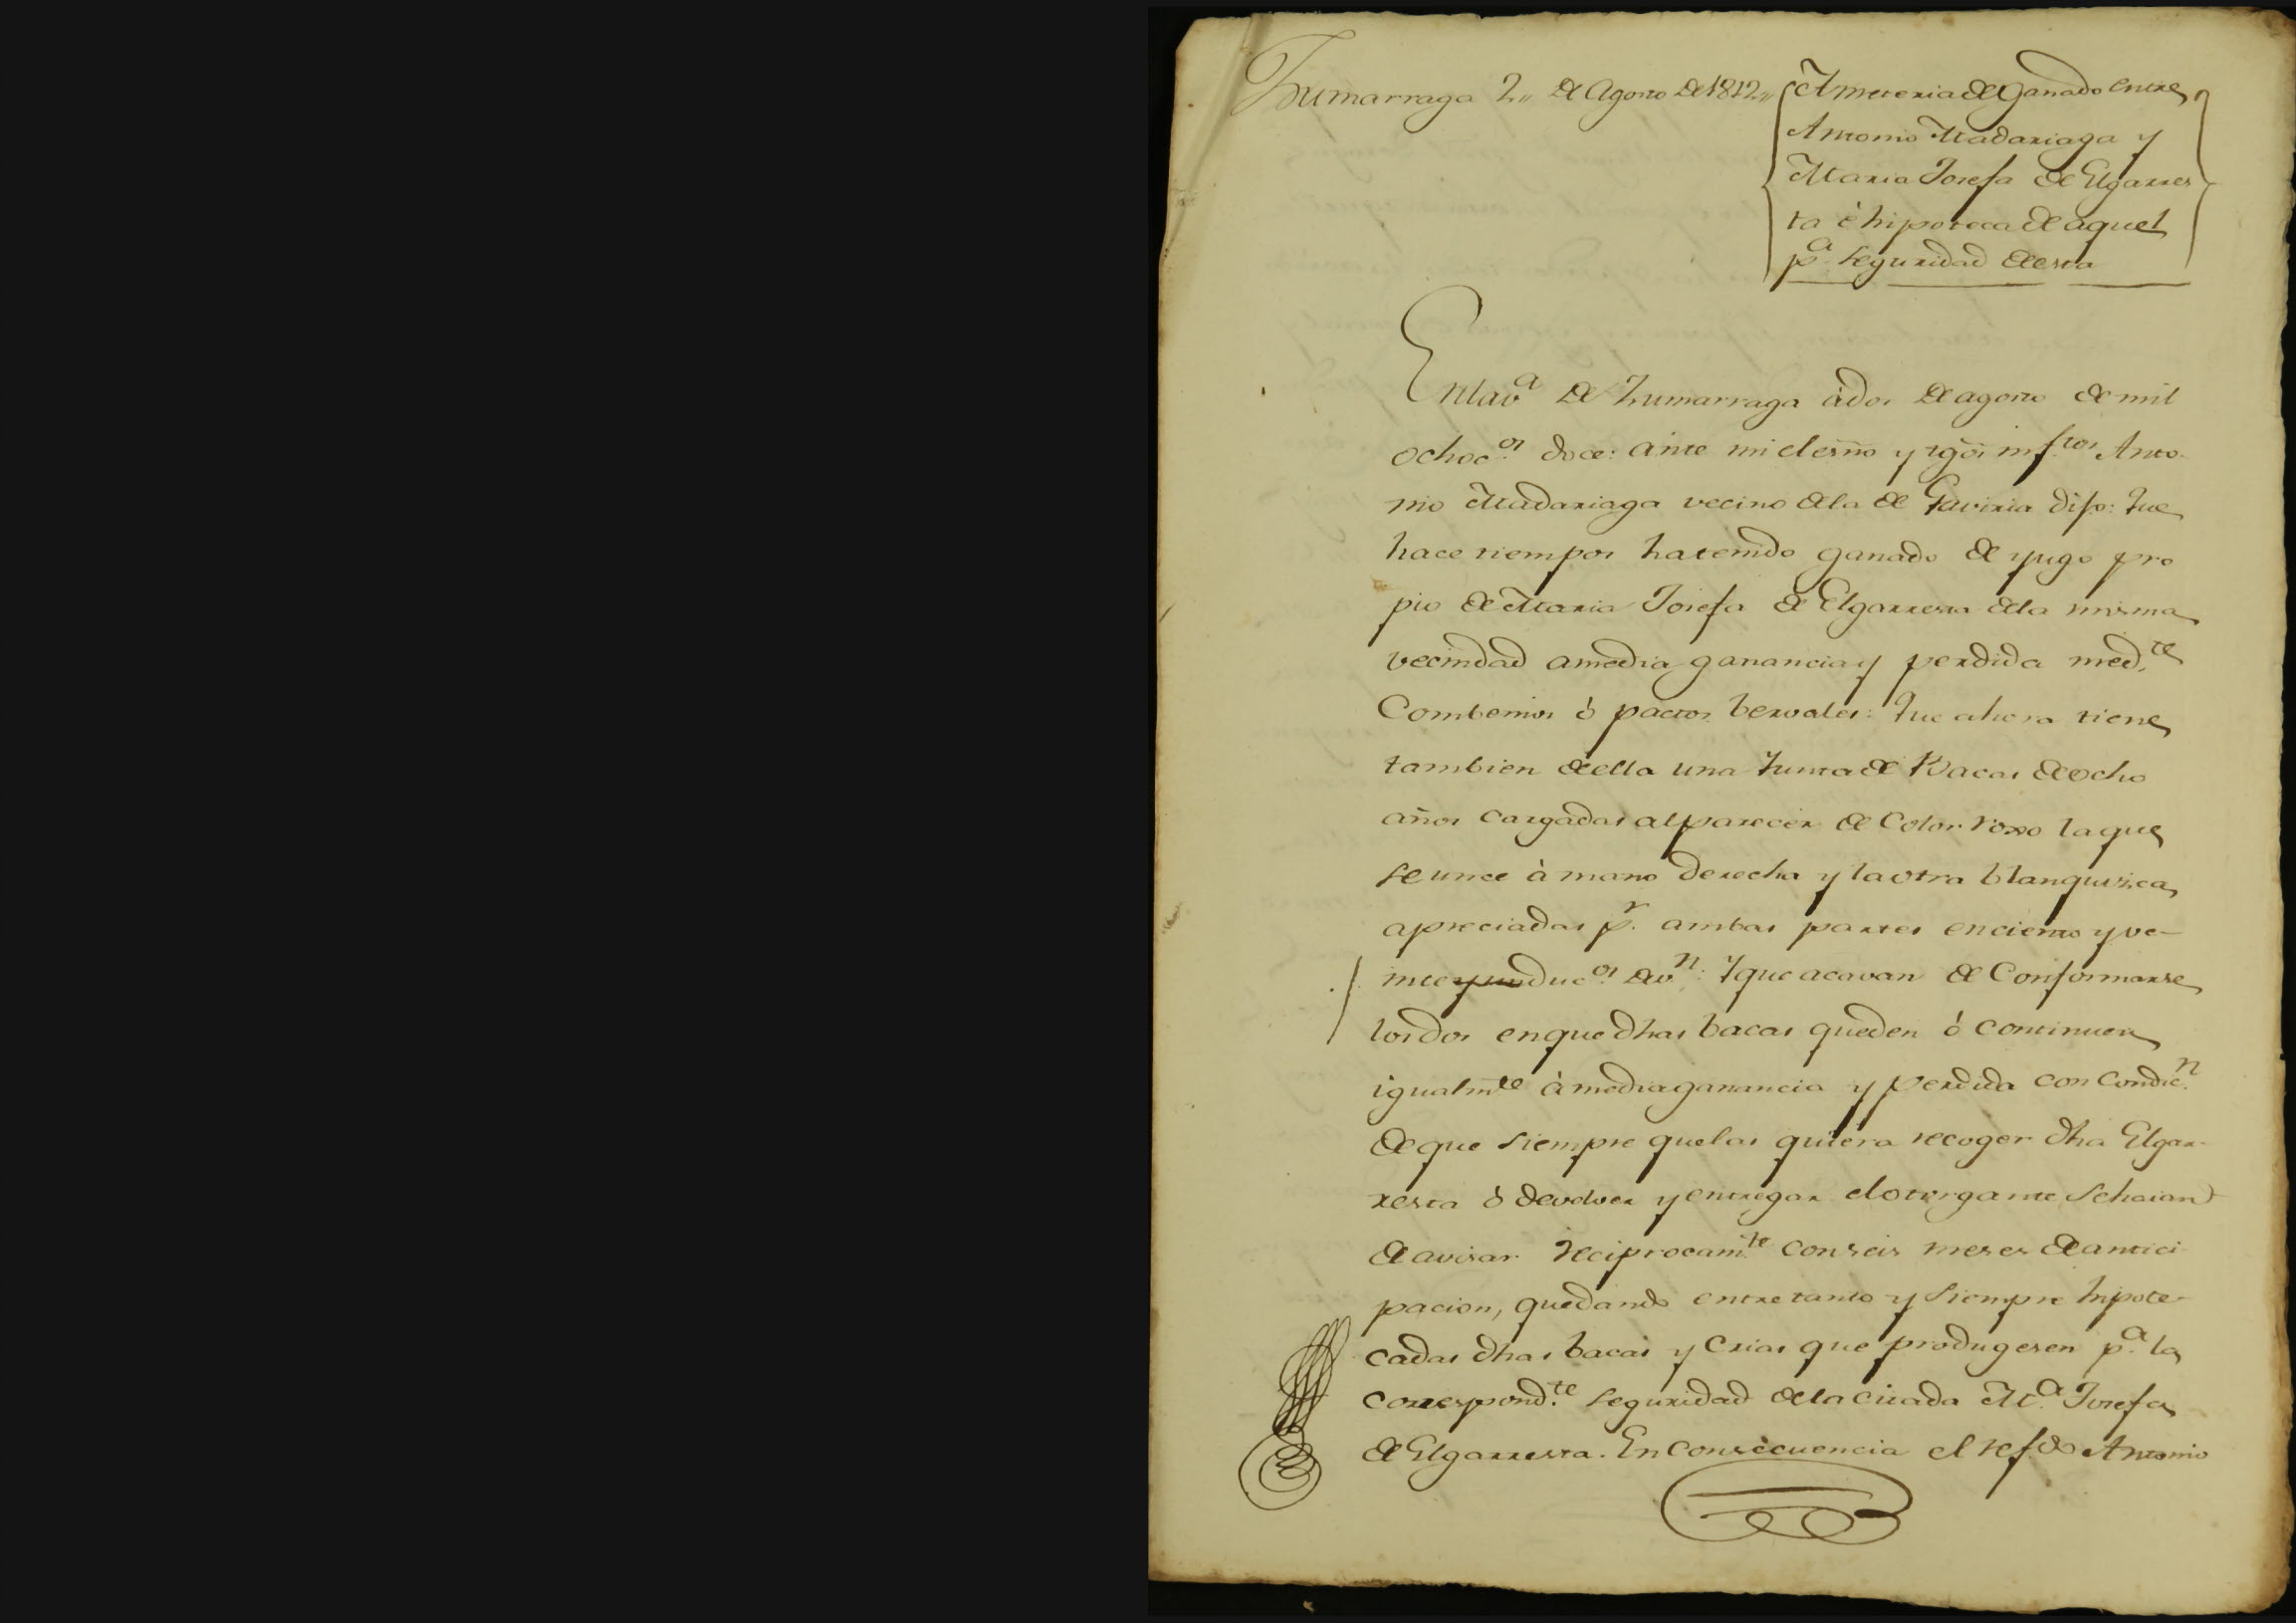 Zumarraga 2,, de Agosto de 1812,,
Ameteria de Ganado entre
Antonio Madariaga y
Maria Josefa de Elgarres
ta è hipoteca de aquel
p.ª seguridad de esta
En la v.ª de Zumarraga à dos de agosto de mil
ochoc.os doce: ante mi el esño y tgõs infros Anto-
nio Madariaga vecino de la de Gaviria dijo: Que
hace tiempos ha tenido ganado de yugo pro
pio de Maria Josefa de Elgarresta de la misma
vecindad a media ganancia y perdida med.te
Combenios ò pactos bervales: Que ahora tiene
tambien de ella una Junta de Bacas de ocho
años cargadas al parecer de Color roxo la que
se unce à mano derecha y la otra blanquizca
apreciadas p.r ambas partes en ciento y ve-
inte y un duc.os de v.n: Y que acavan de Conformarse
los dos en que dhas bacas queden ò continuen
igualm.te à media ganancia y perdida con Condic.n
de que siempre que las quiera recoger dha Elgar-
resta ò devolver y entregar el otorgante, se haian
de avisar reciprocam.te con seis meses de antici-
pacion, quedando entre tanto y siempre hipote-
cadas dhas bacas y Crias que produgeren p.ª la
correspond.te seguridad de la citada M.ª Josefa
de Elgarresta. En Consecuencia el refdo Antonio